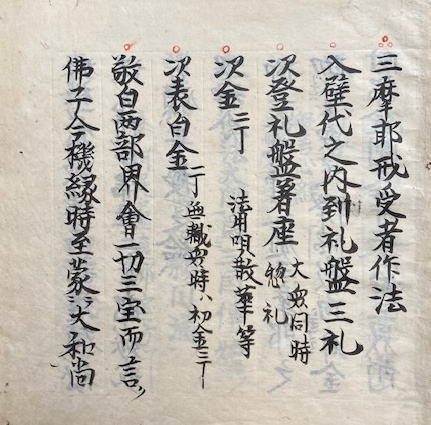 三摩耶戒受者作法
入壁代之内到礼盤三礼
次登礼盤著座 大衆同時惣礼
次金二丁 法用唄散華等
次表白金二丁 無軄衆時ハ初金三丁
敬白両部界會一切三宝而言、
佛子今機縁時至蒙大和尚